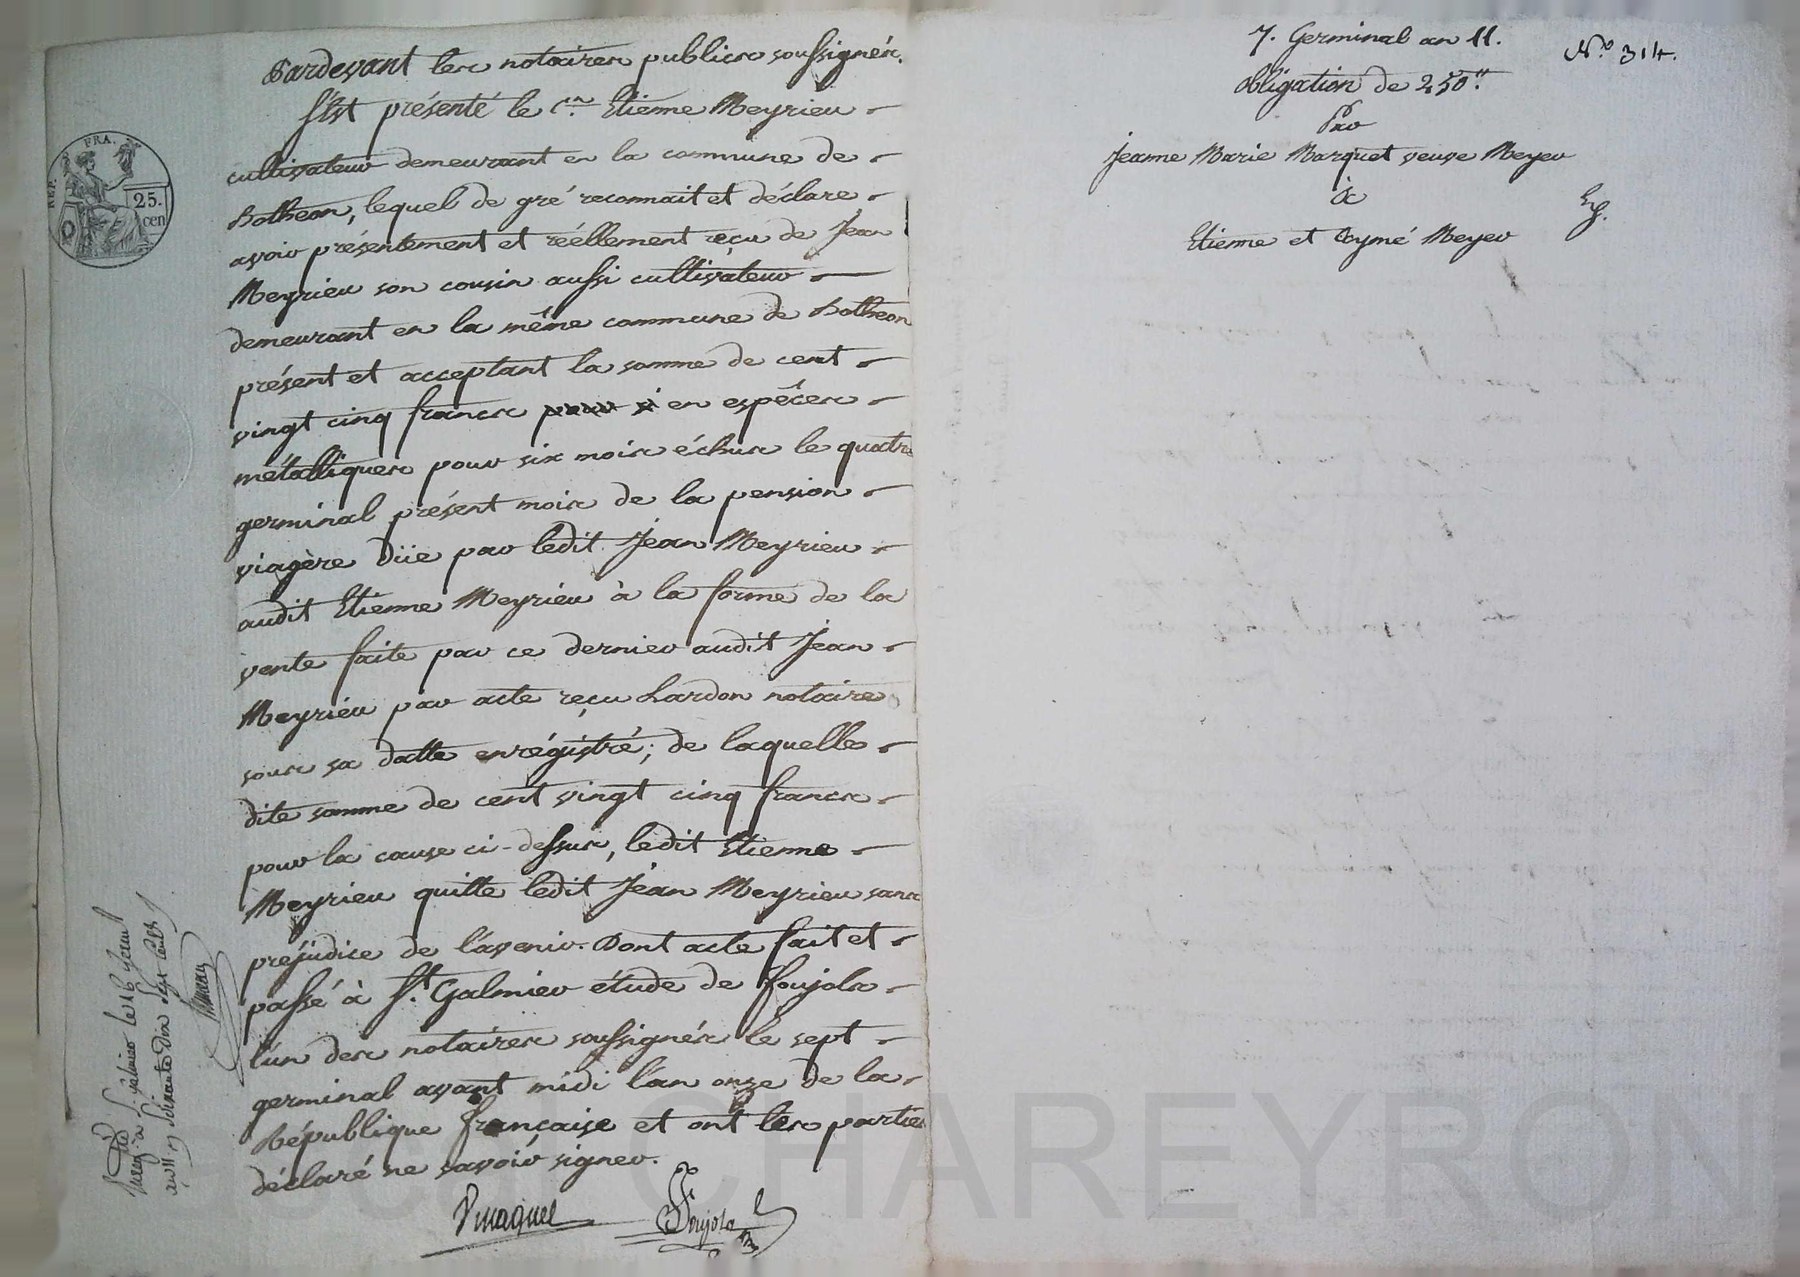 Pardevant les notaires publics soussignés.
S'est présenté le c.en Etienne Meyrieu
cultivateur demeurant en la commune de
Bothéon, lequel de gré reconnait et déclare
avoir présentement et réellement reçu de Jean
Meyrieu son cousin aussi cultivateur
demeurant en la même commune de Bothéon
présent et acceptant la somme de cent
vingt cinq francs en espéces
métalliques pour six mois échus le quatre
germinal présent mois de la pension
viagère düe par ledit Jean Meyrieu
audit Etienne Meyrieu à la forme de la
vente faite par ce dernier audit Jean
Meyrieu par acte reçu Lardon notaire
sous sa datte enrégistré; de laquelle
dite somme de cent vingt cinq francs
pour la cause ci-dessus, ledit Etienne
Meyrieu quitte ledit Jean Meyrieu sans
préjudice de l'avenir. Dont acte fait et
passé à S.t Galmier étude de Foujols
l'un des notaires soussignés le sept
germinal avant midi l'an onze de la
République française et ont les parties
déclaré ne savoir signer.
Foujols
REP. FRA.
25.
cen
7. Germinal an 11.
N.o 314.
obligation de 250.
Par
Jeanne Marie Marquet veuve Meyer
à
Etienne et Aymé Meyer
CHAREYRON